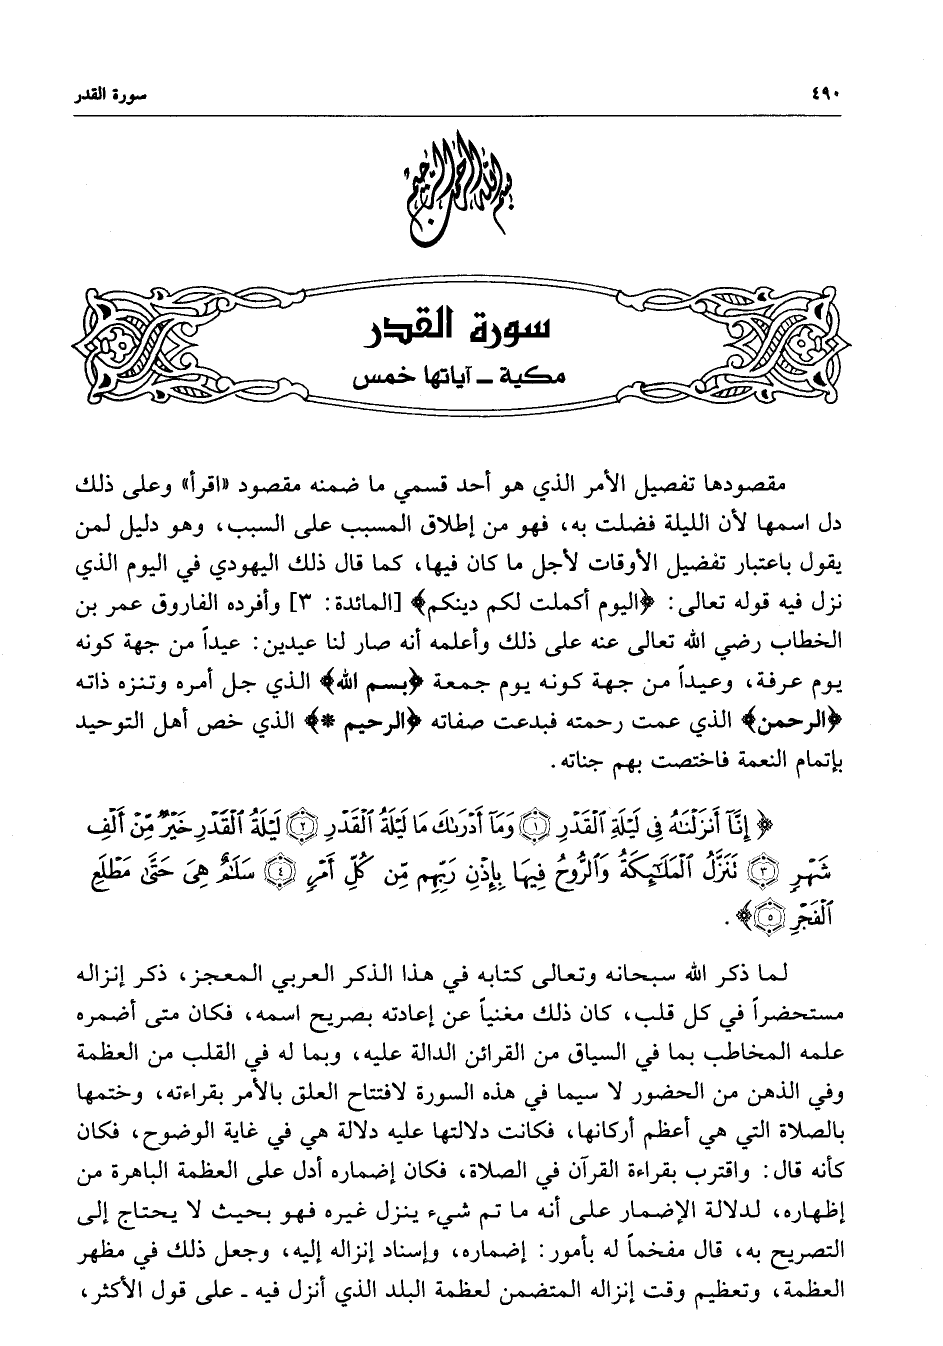 ٤٩٠ سورة القدر
بسم الله الرحمن الرحيم
سورة القدر
مكية ــ آياتها خمس
مقصودها تفصيل الأمر الذي هو أحد قسمي ما ضمنه مقصود «اقرأ» وعلى ذلك
دل اسمها لأن الليلة فضلت به، فهو من إطلاق المسبب على السبب، وهو دليل لمن
يقول باعتبار تفضيل الأوقات لأجل ما كان فيها، كما قال ذلك اليهودي في اليوم الذي
نزل فيه قوله تعالى: ﴿اليوم أكملت لكم دينكم﴾ [المائدة: ٣] وأفرده الفاروق عمر بن
الخطاب رضي الله تعالى عنه على ذلك وأعلمه أنه صار لنا عيدين: عيداً من جهة كونه
يوم عرفة، وعيداً من جهة كونه يوم جمعة ﴿بسم الله﴾ الذي جل أمره وتنزه ذاته
﴿الرحمن﴾ الذي عمت رحمته فبدعت صفاته ﴿الرحيم *﴾ الذي خص أهل التوحيد
بإتمام النعمة فاختصت بهم جناته.
﴿ إِنَّآ أَنزَلْنَٰهُ فِى لَيْلَةِ ٱلْقَدْرِ ۝١ وَمَآ أَدْرَىٰكَ مَا لَيْلَةُ ٱلْقَدْرِ ۝٢ لَيْلَةُ ٱلْقَدْرِ خَيْرٌ مِّنْ أَلْفِ
شَهْرٍ ۝٣ تَنَزَّلُ ٱلْمَلَٰٓئِكَةُ وَٱلرُّوحُ فِيهَا بِإِذْنِ رَبِّهِم مِّن كُلِّ أَمْرٍ ۝٤ سَلَٰمٌ هِىَ حَتَّىٰ مَطْلَعِ
ٱلْفَجْرِ ۝٥﴾.
لما ذكر الله سبحانه وتعالى كتابه في هذا الذكر العربي المعجز، ذكر إنزاله
مستحضراً في كل قلب، كان ذلك مغنياً عن إعادته بصريح اسمه، فكان متى أضمره
علمه المخاطب بما في السياق من القرائن الدالة عليه، وبما له في القلب من العظمة
وفي الذهن من الحضور لا سيما في هذه السورة لافتتاح العلق بالأمر بقراءته، وختمها
بالصلاة التي هي أعظم أركانها، فكانت دلالتها عليه دلالة هي في غاية الوضوح، فكان
كأنه قال: واقترب بقراءة القرآن في الصلاة، فكان إضماره أدل على العظمة الباهرة من
إظهاره، لدلالة الإضمار على أنه ما تم شيء ينزل غيره فهو بحيث لا يحتاج إلى
التصريح به، قال مفخماً له بأمور: إضماره، وإسناد إنزاله إليه، وجعل ذلك في مظهر
العظمة، وتعظيم وقت إنزاله المتضمن لعظمة البلد الذي أنزل فيه ـ على قول الأكثر،